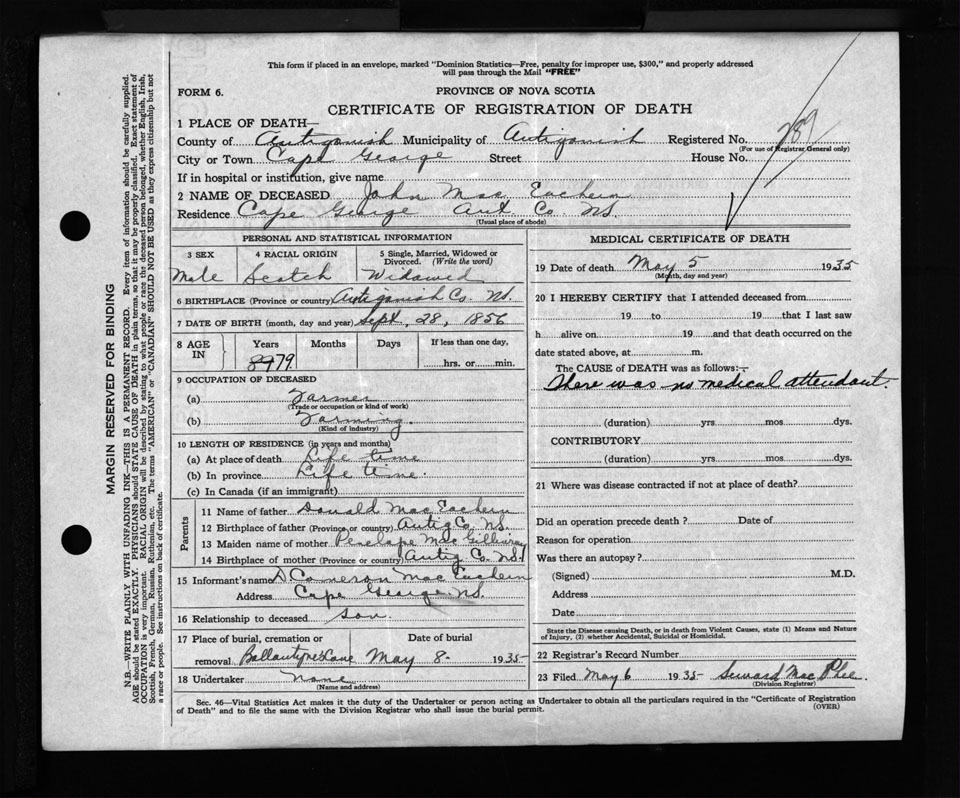 This form if placed in an envelope, marked "Dominion Statistics—Free, penalty for improper use, $300," and properly addressed
will pass through the Mail "FREE"
FORM 6.
PROVINCE OF NOVA SCOTIA
CERTIFICATE OF REGISTRATION OF DEATH
1 PLACE OF DEATH—
County of Antigonish Municipality of Antigonish Registered No. 289
(For use of Registrar General only)
City or Town Cape George Street House No.
If in hospital or institution, give name
2 NAME OF DECEASED John Mac Eachern
Residence Cape George Ant. Co. NS.
(Usual place of abode)
PERSONAL AND STATISTICAL INFORMATION
3 SEX 4 RACIAL ORIGIN 5 Single, Married, Widowed or
Divorced. (Write the word)
Male Scotch Widowed
6 BIRTHPLACE (Province or country) Antigonish Co. NS.
7 DATE OF BIRTH (month, day and year) Sept. 28, 1856
8 AGE IN Years Months Days If less than one day,
89 79 hrs. or min.
9 OCCUPATION OF DECEASED
(a) Farmer
(Trade or occupation or kind of work)
(b) Farming
(Kind of industry)
10 LENGTH OF RESIDENCE (in years and months)
(a) At place of death Life time
(b) In province Life time.
(c) In Canada (if an immigrant)
Parents
11 Name of father Donald Mac Eachern
12 Birthplace of father (Province or country) Antig Co. NS.
13 Maiden name of mother Penelape Mac Gillivray
14 Birthplace of mother (Province or country) Antig. Co. NS.
15 Informant's name D Cameron Mac Eachern
Address Cape George NS.
16 Relationship to deceased Son.
17 Place of burial, cremation or Date of burial
removal Ballantynes Cove May 8. 1935
18 Undertaker None
(Name and address)
MEDICAL CERTIFICATE OF DEATH
19 Date of death May 5 1935
(Month, day and year)
20 I HEREBY CERTIFY that I attended deceased from
19 to 19 that I last saw
h alive on 19 and that death occurred on the
date stated above, at m.
The CAUSE of DEATH was as follows:—
There was no medical attendant.
(duration) yrs mos dys.
CONTRIBUTORY
(duration) yrs. mos. dys.
21 Where was disease contracted if not at place of death?
Did an operation precede death? Date of
Reason for operation
Was there an autopsy?
(Signed) M.D.
Address
Date
State the Disease causing Death, or in death from Violent Causes, state (1) Means and Nature
of Injury, (2) whether Accidental, Suicidal or Homicidal.
22 Registrar's Record Number
23 Filed May 6 1935 Seward Mac Phee
(Division Registrar)
Sec. 46—Vital Statistics Act makes it the duty of the Undertaker or person acting as Undertaker to obtain all the particulars required in the "Certificate of Registration
of Death" and to file the same with the Division Registrar who shall issue the burial permit.
(OVER)
MARGIN RESERVED FOR BINDING
N.B.—WRITE PLAINLY WITH UNFADING INK—THIS IS A PERMANENT RECORD. Every item of information should be carefully supplied.
AGE should be stated EXACTLY. PHYSICIANS should STATE CAUSE OF DEATH in plain terms, so that it may be properly classified. Exact statement of
OCCUPATION is very important. RACIAL ORIGIN will be described by stating to what people or race the deceased person belonged, whether English, Irish,
Scottish, French, German, Russian, Ruthenian, etc. The terms "AMERICAN" or "CANADIAN" SHOULD NOT BE USED as they express citizenship but not
a race or people. See instructions on back of certificate.